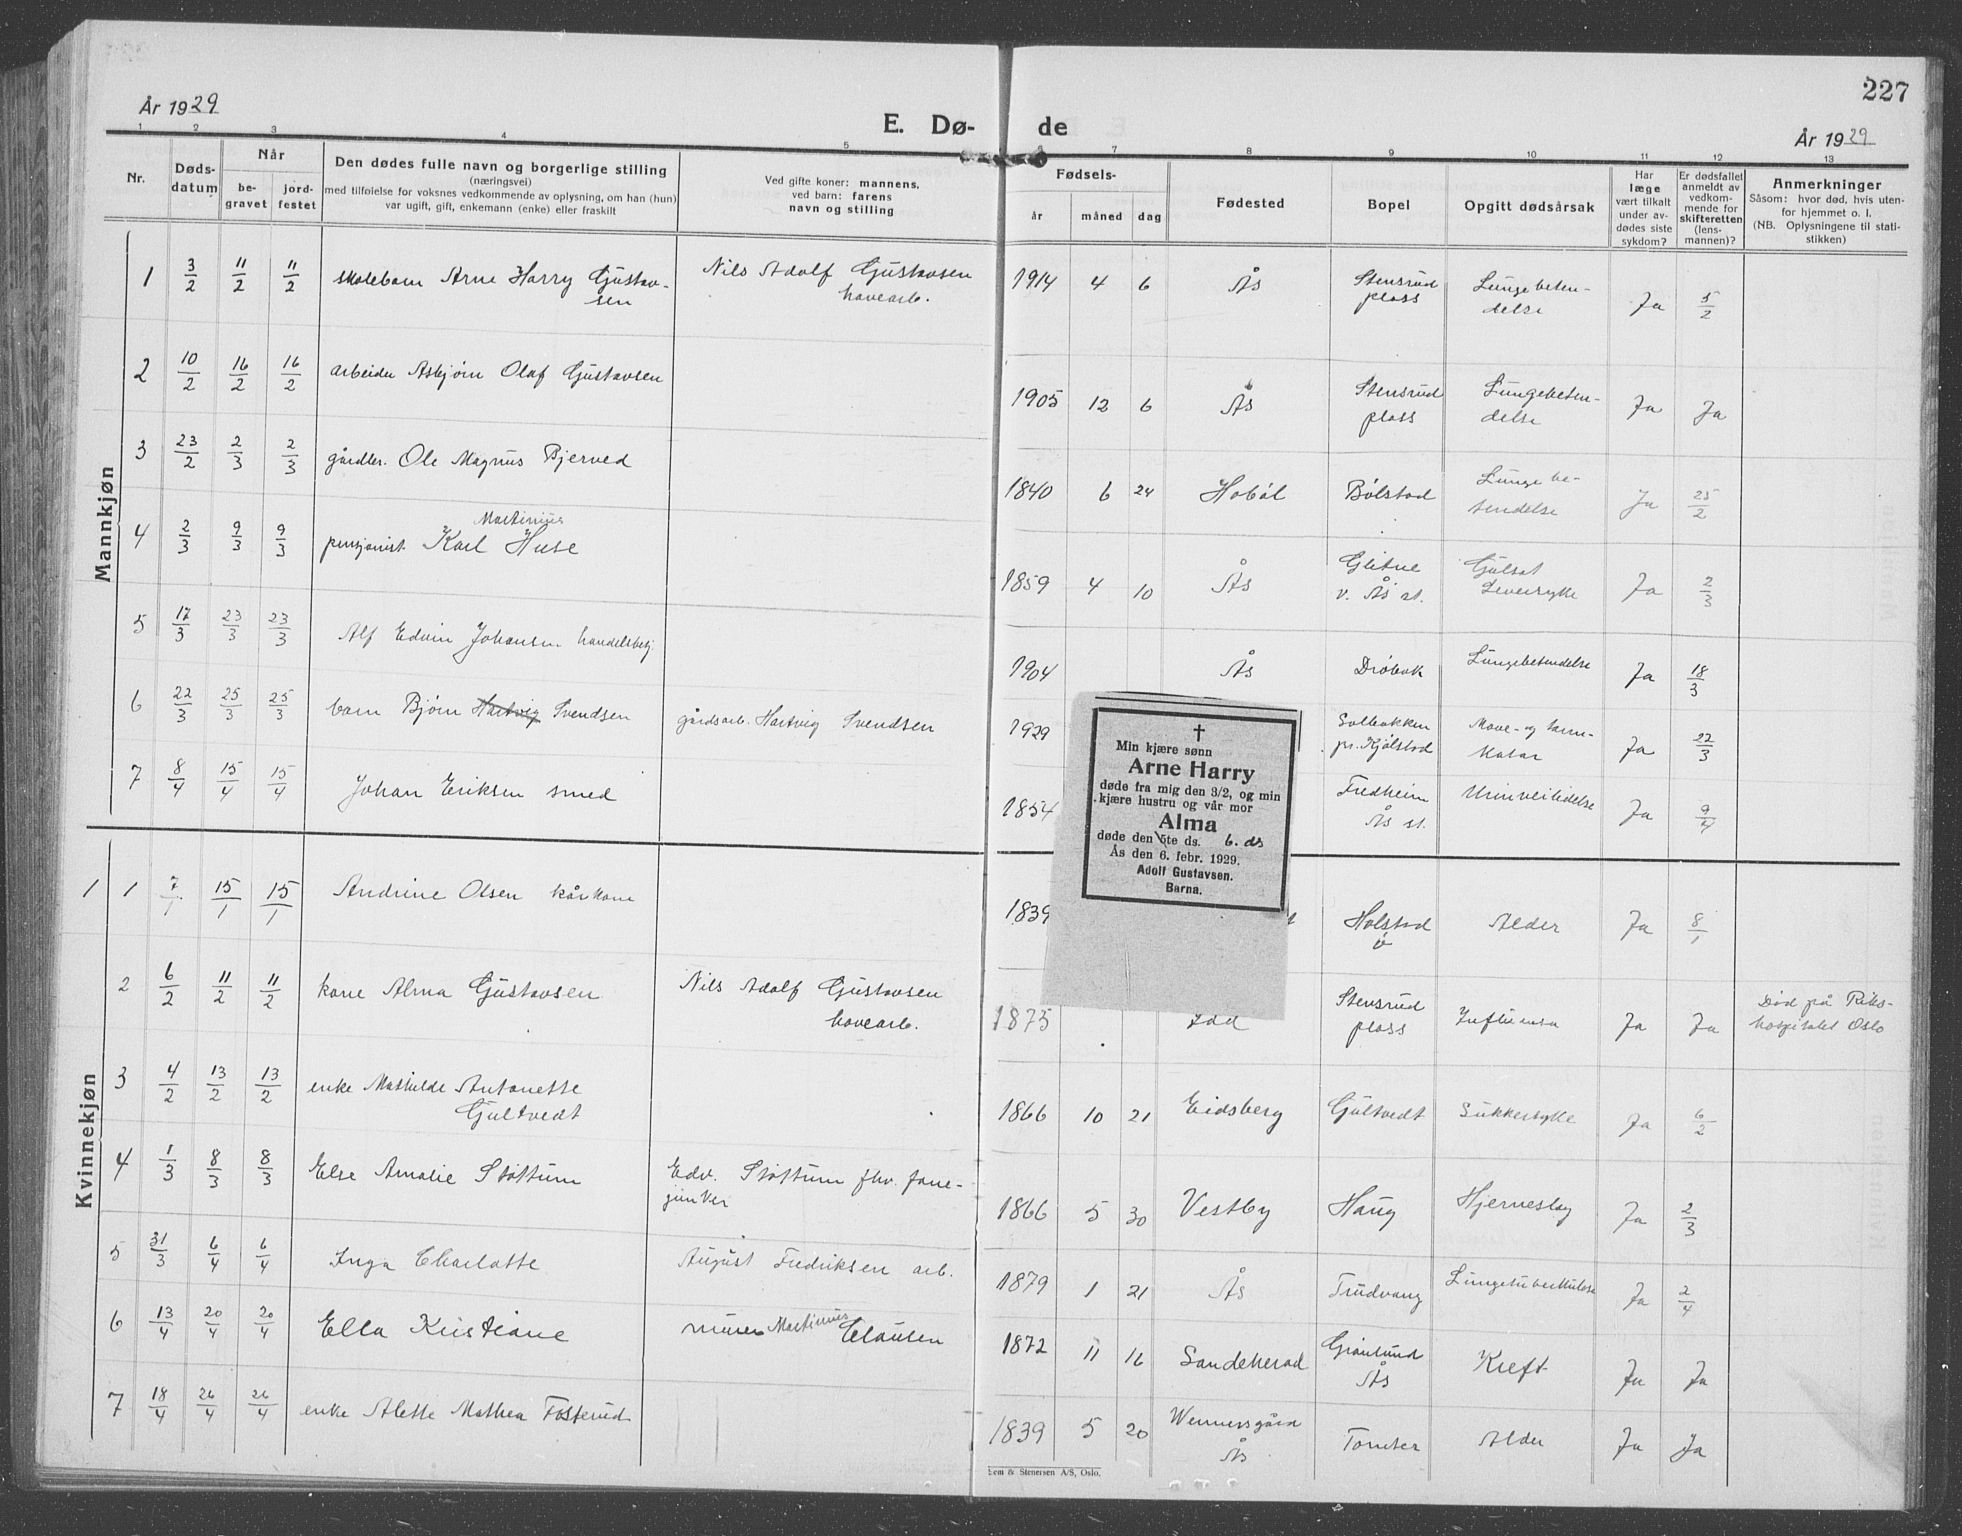 227
År 1929
E. Dø- de
År 1929
1 2 3 4 5 6 7 8 9 10 11 12 13
Nr.
Døds-
datum
Når
be-
gravet
jord-
festet
Den dødes fulle navn og borgerlige stilling
(næringsvei)
med tilføielse for voksnes vedkommende av oplysning, om han (hun)
var ugift, gift, enkemann (enke) eller fraskilt
Ved gifte koner: mannens,
ved barn: farens
navn og stilling
Fødsels-
år måned dag
Fødested
Bopel
Opgitt dødsårsak
Har
læge
vært tilkalt
under av-
dødes siste
sykdom?
Er dødsfallet
anmeldt av
vedkom-
mende for
skifteretten
(lens-
mannen)?
Anmerkninger
Såsom: hvor død, hvis uten-
for hjemmet o. l.
(NB. Oplysningene til stati-
stikken)
Mannkjøn
1 3/2 11/2 11/2 skolebarn Arne Harry Gustav-
sen
Nils Adolf Gustavsen
havearb.
1914 4 6 Ås
Stensrud
plass
Lungebeten-
delse
Ja 5/2
2 10/2 16/2 16/2 arbeider Asbjørn Olaf Gustavsen
1905 12 6 Ås
Stensrud
plass
Lungebeten-
delse
Ja Ja
3 23/2 2/3 2/3 gårdbr. Ole Magnus Bjerved
1840 6 24 Hobøl Bølstad
Lunge be-
tendelse
Ja 25/2
4 2/3 9/3 9/3
Martinius
pensjonist Karl Huse
1859 4 10 Ås
Glitne
v. Ås st.
Gulsot
Leversyke
Ja 2/3
5 17/3 23/3 23/3 Alf Edvin Johansen handelsbetj.
1904 Ås Drøbak Lungebetendelse Ja 18/3
6 22/3 25/3 25/3 barn Bjørn Hartvig Svendsen gårdsarb. Hartvig Svendsen
1929
Solbakken
pr. Kjølstad
Mave- og tarm-
katar
Ja 22/3
7 8/4 15/4 15/4 Johan Eriksen smed
1854
Fredheim
Ås st.
Urinveilidelse
Ja 9/4
Min kjære sønn
Arne Harry
døde fra mig den 3/2, og min
kjære hustru og vår mor
Alma
døde den 5te ds. 6. ds
Ås den 6. febr. 1929.
Adolf Gustavsen.
Barna.
Kvinnekjøn
1 1 7/1 15/1 15/1 Andrine Olsen kårkone
1839
Holstad
ø
Alder Ja 8/1
2 6/2 11/2 11/2 kone Alma Gustavsen
Nils Adolf Gustavsen
havearb.
1875 Idd
Stensrud
plass
Influensa Ja Ja
Død på Riks-
hospitalet Oslo
3 4/2 13/2 13/2 enke Mathilde Antonette
Gultvedt
1866 10 21 Eidsberg Gultvedt Sukkersyke Ja 6/2
4 1/3 8/3 8/3 Else Amalie Støttum
Edv. Støttum fhv. fane-
junker
1866 5 30 Vestby Haug Hjerneslag Ja 2/3
5 31/3 6/4 6/4 Inga Charlotte August Fredriksen arb.
1879 1 21 Ås Trudvang Lungetuberkulose Ja 2/4
6 13/4 20/4 20/4 Ella Kristiane murer Martinius Clausen
1872 11 16 Sandeherad
Granlund
Ås
Kreft Ja Ja
7 18/4 26/4 26/4 enke Alette Mathea Fosterud
1839 5 20
Wennersgård
Ås
Tomter Alder Ja Ja
Sem & Stenersen A/S, Oslo.